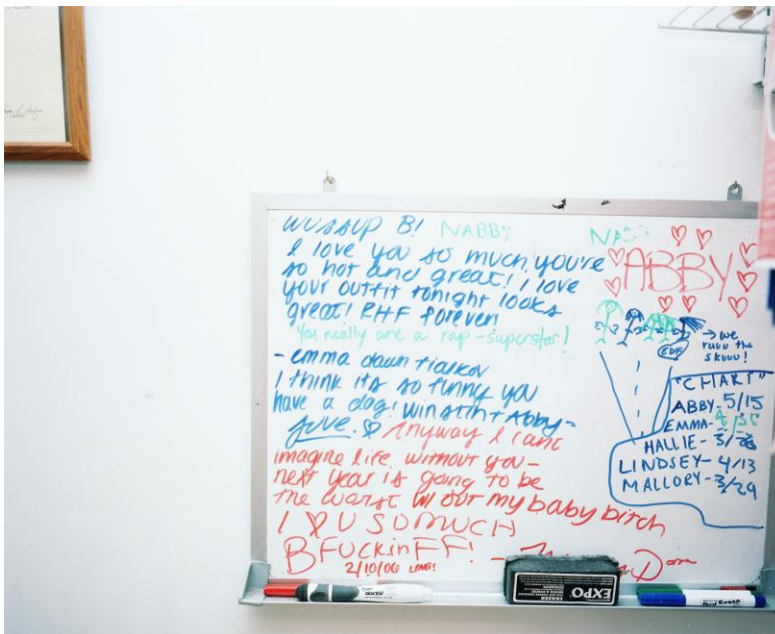 WUSSUP B! NABBY
I love you so much, you're
so hot and great! I love
your outfit tonight looks
great! RHF forever!
You really are a rap-superstar!
- emma dawn
I think its so funny you
have a dog! winstin + Abby =
love. Anyway I cant
imagine life without you-
next year is going to be
the worst w/out my baby bitch
I U SO MUCH
BFUCKinFF! -
2/10/06
ABBY
→ we
ruuu the
skuuu!
EDF
"CHART"
ABBY- 5/15
EMMA-
HALLIE- 3/
LINDSEY- 4/13
MALLORY- 3/29
doctor
EXPO